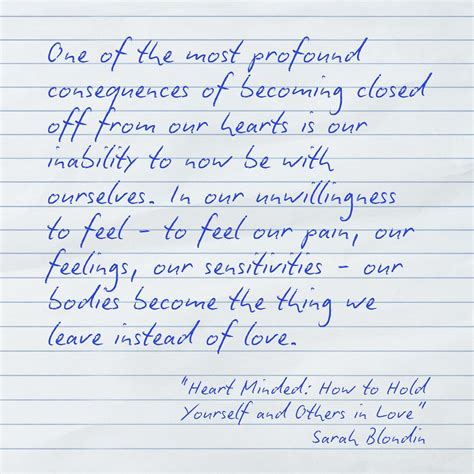 One of the most profound
consequences of becoming closed
off from our hearts is our
inability to now be with
ourselves. In our unwillingness
to feel - to feel our pain, our
feelings, our sensitivities - our
bodies become the thing we
leave instead of love.
"Heart Minded: How to Hold
Yourself and Others in Love"
Sarah Blondin